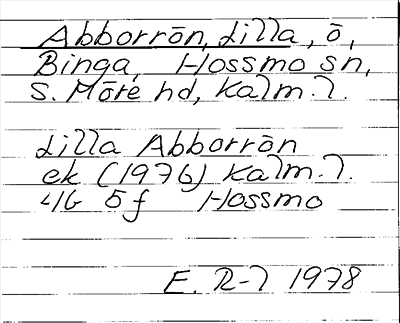 Abborrön, Lilla, ö,
Binga, Hossmo sn,
S. Möre hd, Kalm. l.
Lilla Abborrön
ek (1976) Kalm. l.
4G 5f Hossmo
E. R-l 1978